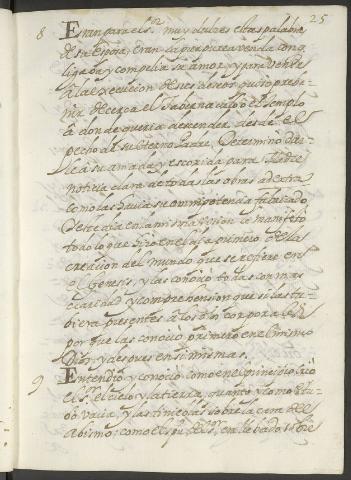 25
8 Eran para el Sr. muy dulces estas palabras
de su Esposa, eran la purpurea venda con q.
ligaba y compelia su amor, y para venir
a la execucion de sus deseos quiso preve-
nir de cerca el tabernaculo o el templo
a donde queria descender desde el
pecho de su eterno Padre. Determino dar-
le a su amada y escogida para Madre
noticia clara de todas las obras ad extra
como las havia su omnipotencia fabricado.
Este dia en la misma vision le manifesto
todo lo que hizo en el dia primero de la
creacion del mundo que se refiere en
el Genesis, y las conocio todas con mas
claridad y comprehension que si las tu-
biera presentes a los ojos corporales
por que las conocio primero en el mismo
Dios, y despues en si mismas.
9 Entendio, y conocio como en el principio crio
el Sr. el cielo y la tierra, quanto, y como estu-
bo vacia, y las tinieblas sobre la cara del
abismo: como el spu. del Sr. era llebado sobre